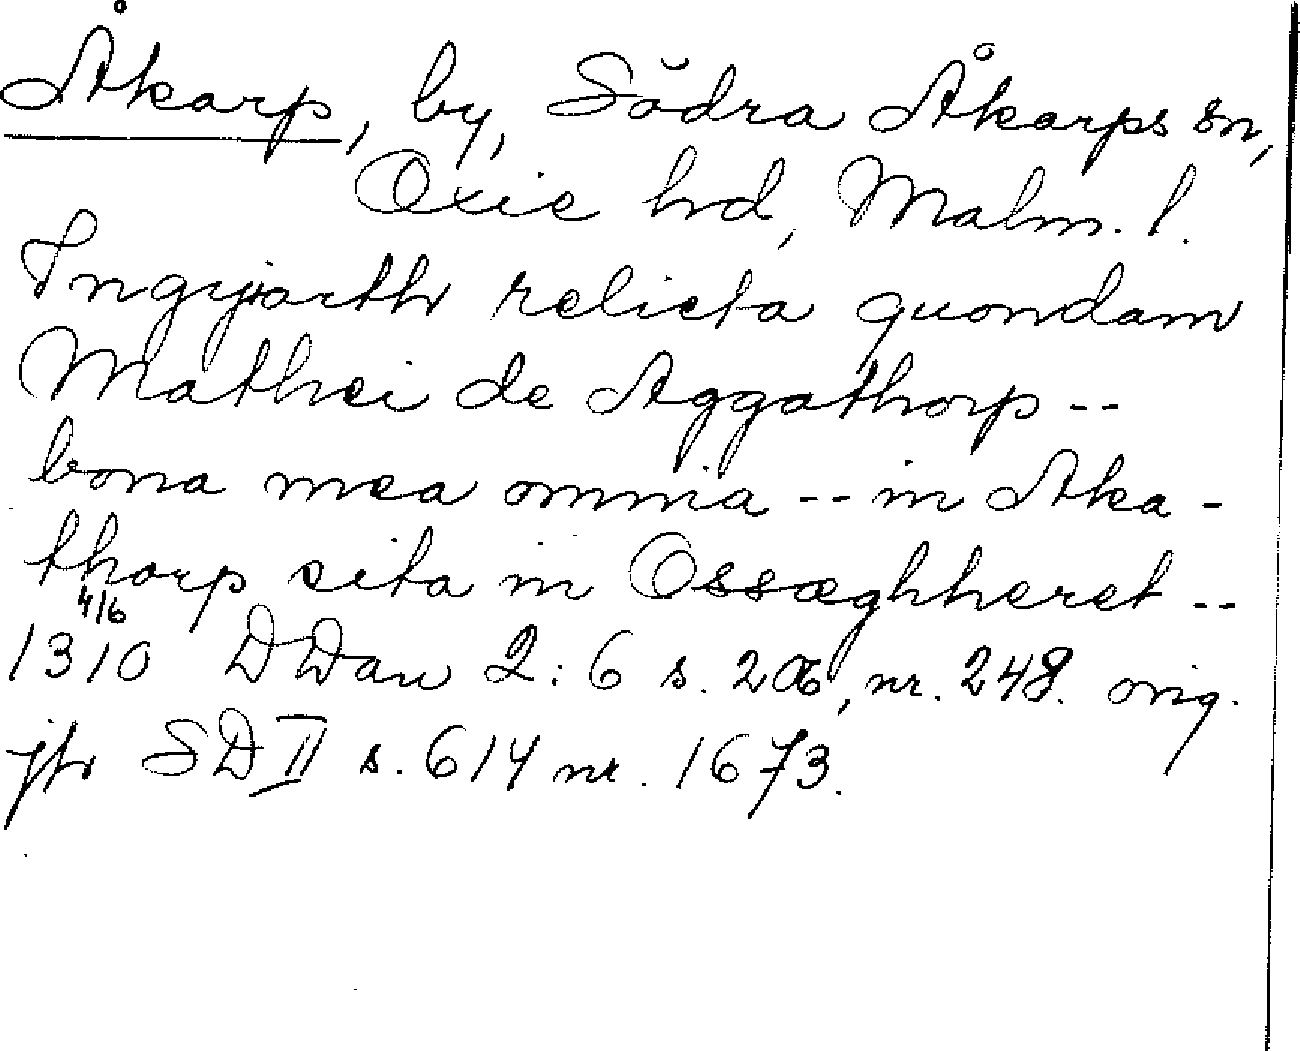 Åkarp, by, Södra Åkarps sn,
Oxie hd, Malm. l.
Ingyarth relicta quondam
Mathei de Aggathorp --
bona mea omnia -- in Aka-
thorp sita in Ossæghheret --
4/6
1310 DDan 2:6 s. 206, nr. 248. orig.
jfr SD II s. 614 nr. 1673.